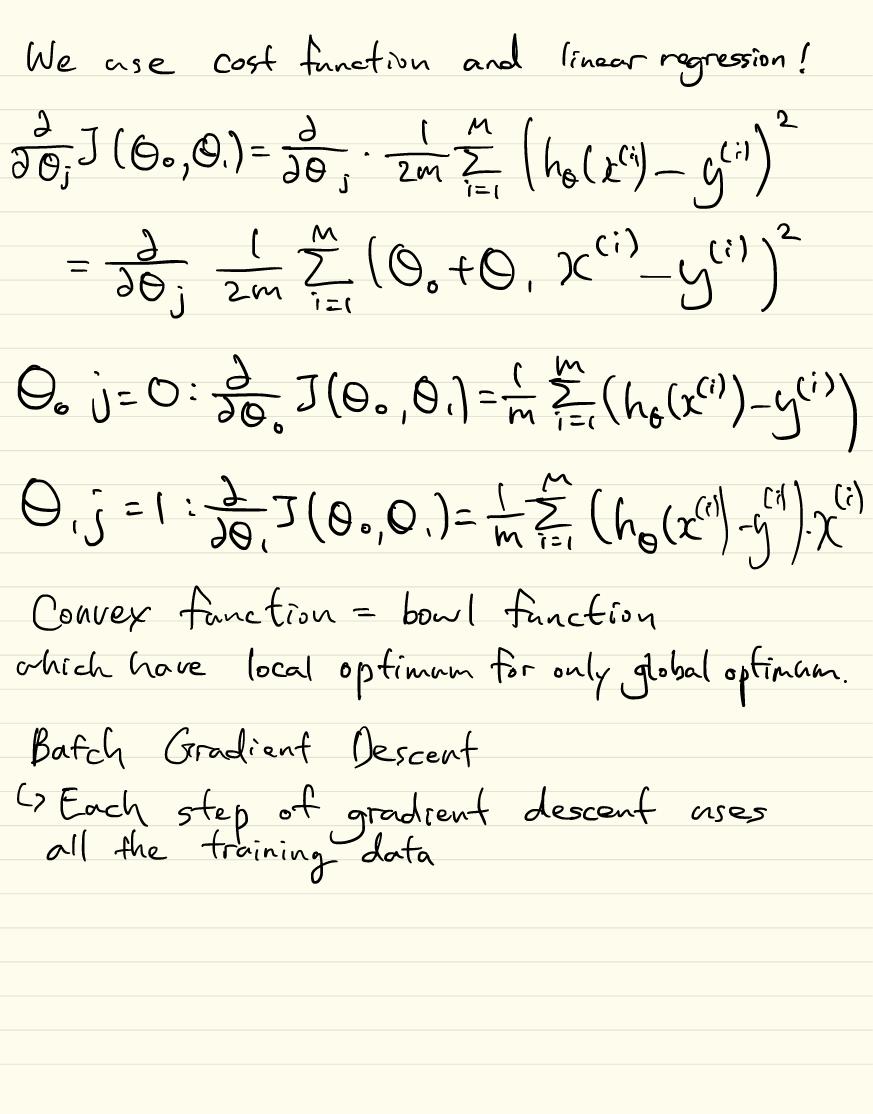 We use cost function and linear regression!
∂/∂θⱼ J(θ₀,θ₁) = ∂/∂θⱼ · 1/2m Σᵢ₌₁ᴹ (h_θ(x⁽ⁱ⁾) − y⁽ⁱ⁾)²
= ∂/∂θⱼ 1/2m Σᵢ₌₁ᴹ (θ₀ + θ₁ x⁽ⁱ⁾ − y⁽ⁱ⁾)²
θ₀ j=0 : ∂/∂θ₀ J(θ₀,θ₁) = 1/m Σᵢ₌₁ᵐ (h_θ(x⁽ⁱ⁾) − y⁽ⁱ⁾)
θ₁ j=1 : ∂/∂θ₁ J(θ₀,θ₁) = 1/m Σᵢ₌₁ᴹ (h_θ(x⁽ⁱ⁾) − y⁽ⁱ⁾) · x⁽ⁱ⁾
Convex function = bowl function
which have local optimum for only global optimum.
Batch Gradient Descent
↳ Each step of gradient descent uses
all the training data